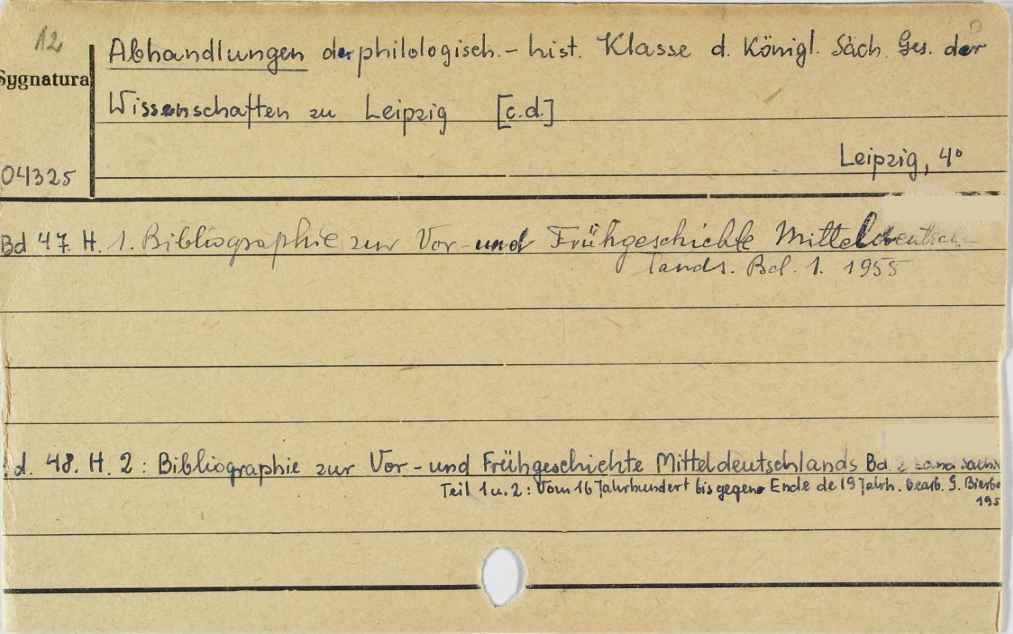 12
Abhandlungen der philologisch.- hist. Klasse d. Königl. Säch. Ges. der
Sygnatura
Wissenschaften zu Leipzig [c.d.]
Leipzig, 4°
04325
Bd 47. H. 1. Bibliographie zur Vor- und Frühgeschichte Mitteldeutsch-
lands. Bd. 1. 1955
d. 48. H. 2: Bibliographie zur Vor- und Frühgeschichte Mitteldeutschlands Bd. 2
Teil 1 u. 2: Vom 16 Jahrhundert bis gegen Ende de 19 Jahrh. bearb. G.
195